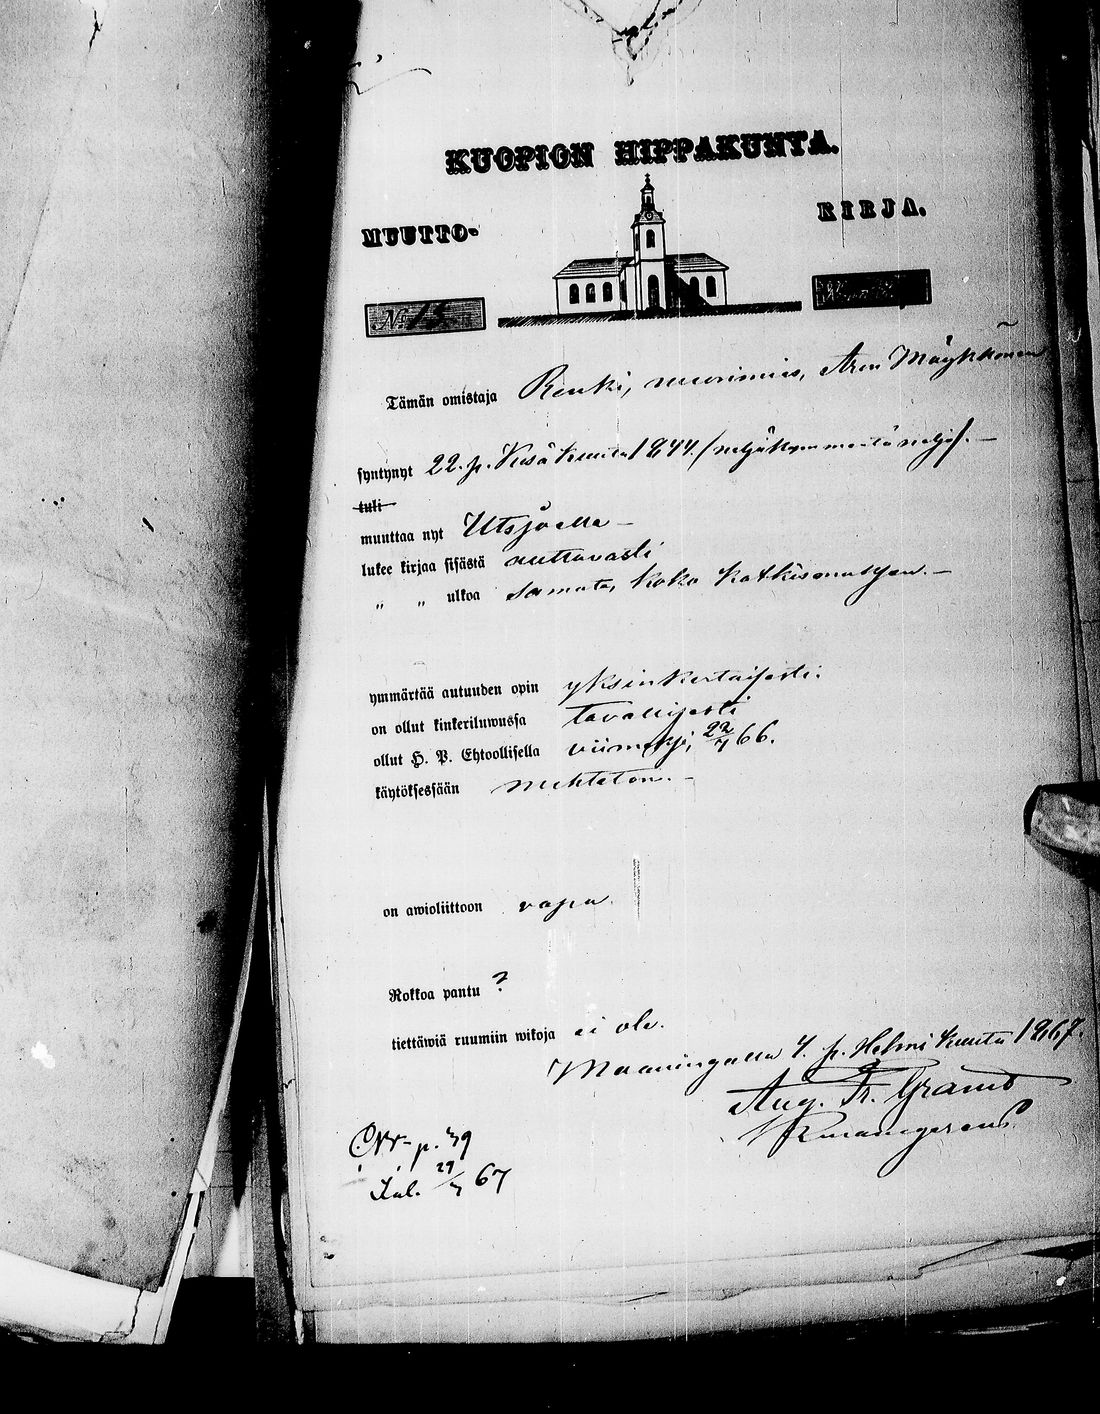 KUOPION HIPPAKUNTA.
MUUTTO- KIRJA.
No 13
Tämän omistaja Renki, nuorimies, Aron Möykkönen
syntynyt 22. p. Kesäkuuta 1844. (neljäkymmentäneljä). —
tuli
muuttaa nyt Utsjoelle —
lukee kirjaa sisästä auttavasti
„ „ ulkoa samate, koko katkismuksen. —
ymmärtää autuuden opin yksinkertaisesti.
on ollut kinkeriluwussa tavallisesti
ollut H. P. Ehtoollisella viimeksi, 22/7 66.
käytöksessään nuhteeton. —
on awioliittoon vapa
Rokkoa pantu ?
tiettäwiä ruumiin wikoja ei ole.
Maaningalla 4. p. Helmikuuta 1867.
Aug. Fr. Granit
p. 39
Inl. 29/7 67